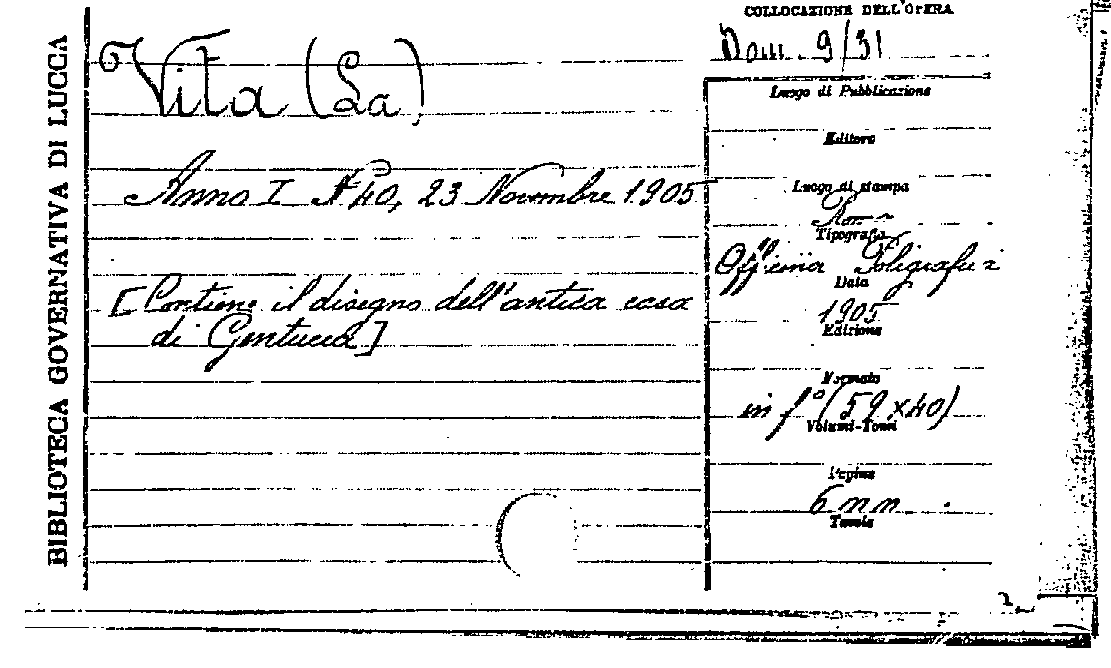 BIBLIOTECA GOVERNATIVA DI LUCCA
COLLOCAZIONE DELL'OPERA
Dom. 9/31
Vita (La)
Anno I N 40, 23 Novembre 1905
[Contiene il disegno dell'antica casa
di Gentucca]
Luogo di Pubblicazione
Editore
Luogo di stampa
Roma
Tipografia
Officina Poligrafica
Data
1905
Edizione
Formato
in f° (59 x 40)
Volumi-Tomi
Pagine
6 n n.
Tavole